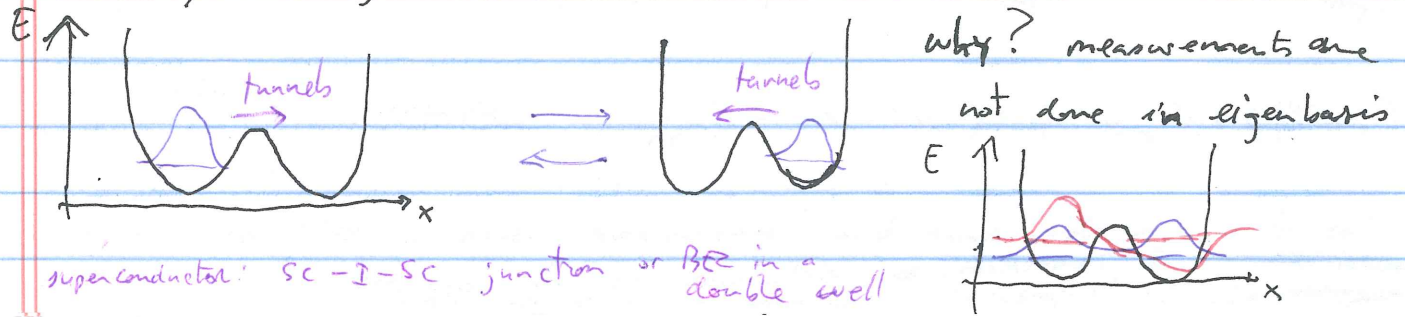 E
tunnels
x
tunnels
why? measurements are
not done in eigenbasis
E
x
superconductor: SC-I-SC junction or BEC in a
double well